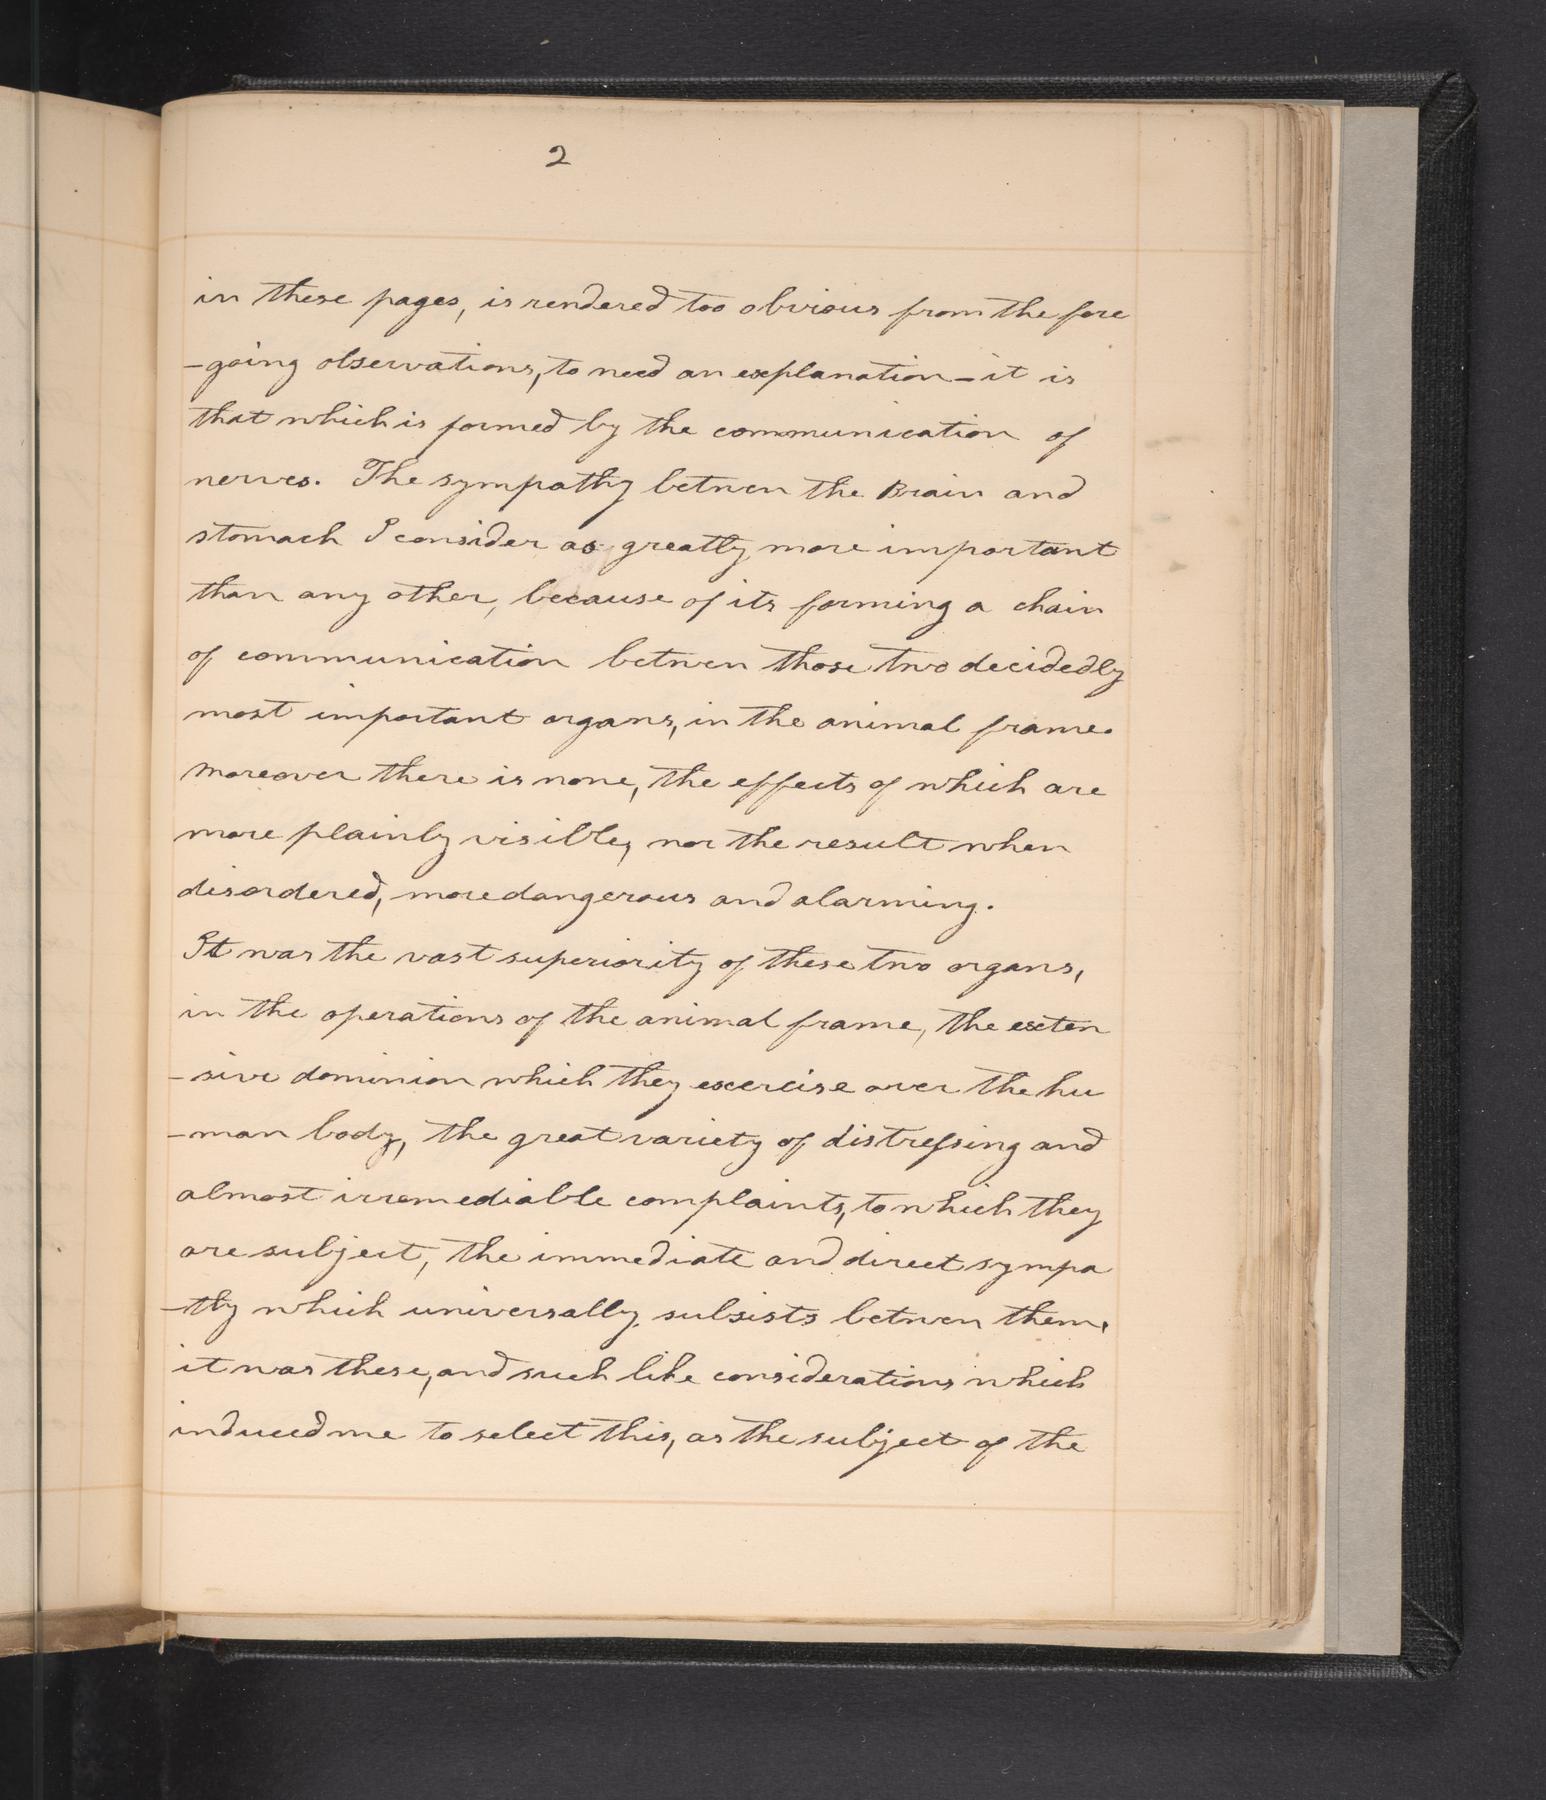 2
in these pages, is rendered too obvious from the fore
-going observations, to need an explanation - it is
that which is formed by the communication of
nerves. The sympathy between the Brain and
stomach I consider as greatly more important
than any other, because of its forming a chain
of communication between those two decidedly
most important organs, in the animal frame.
Moreover there is none, the effects of which are
more plainly visible, nor the result when
disordered, more dangerous and alarming.
It was the vast superiority of these two organs,
in the operations of the animal frame, the exten
-sive dominion which they exercise over the hu
-man body, the great variety of distressing and
almost irremediable complaints, to which they
are subject, the immediate and direct sympa
-thy which universally subsists between them,
it was these, and such like considerations which
induced me to select this, as the subject of the